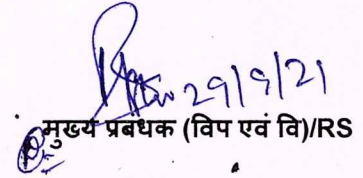 29/9/21
मुख्य प्रबंधक (विप एवं वि)/RS